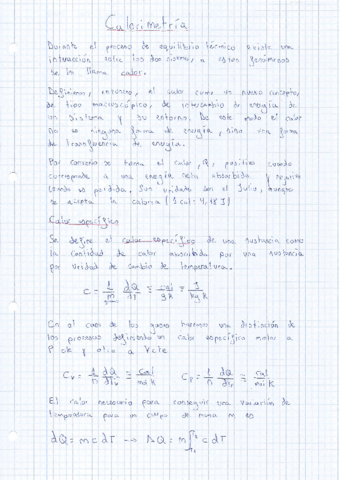 Calorimetría
Durante el proceso de equilibrio térmico existe una
interacción entre los dos, a estos fenómenos
se lo llama calor.
Definimos, entonces, el calor como un nuevo concepto,
de tipo macroscópico, de intercambio de energía de
un sistema y su entorno. De este modo el calor
no es ninguna forma de energía, sino una forma
de transferencia de energía.
Por convenio se toma el calor, Q, positivo cuando
corresponde a una energía neta absorbida y negativo
cuando es perdida. Sus unidades son el Julio, aunque
se acepta la caloría (1 cal = 4,18 J)
Calor específico
Se define el calor específico de una sustancia como
la cantidad de calor absorbida por una sustancia
por unidad de cambio de temperatura.
C = 1/m dQ/dT ≡ cal/g K ≡ J/kg K
En el caso de los gases hacemos una distinción de
los procesos definiendo un calor específico molar a
P cte y otro a V cte
Cv = 1/n dQ/dTv ≡ cal/mol K Cp = 1/n dQ/dTp ≡ cal/mol K
El calor necesario para conseguir una variación de
temperatura para un cuerpo de masa m es
dQ = m c dT → ΔQ = m ∫ c dT